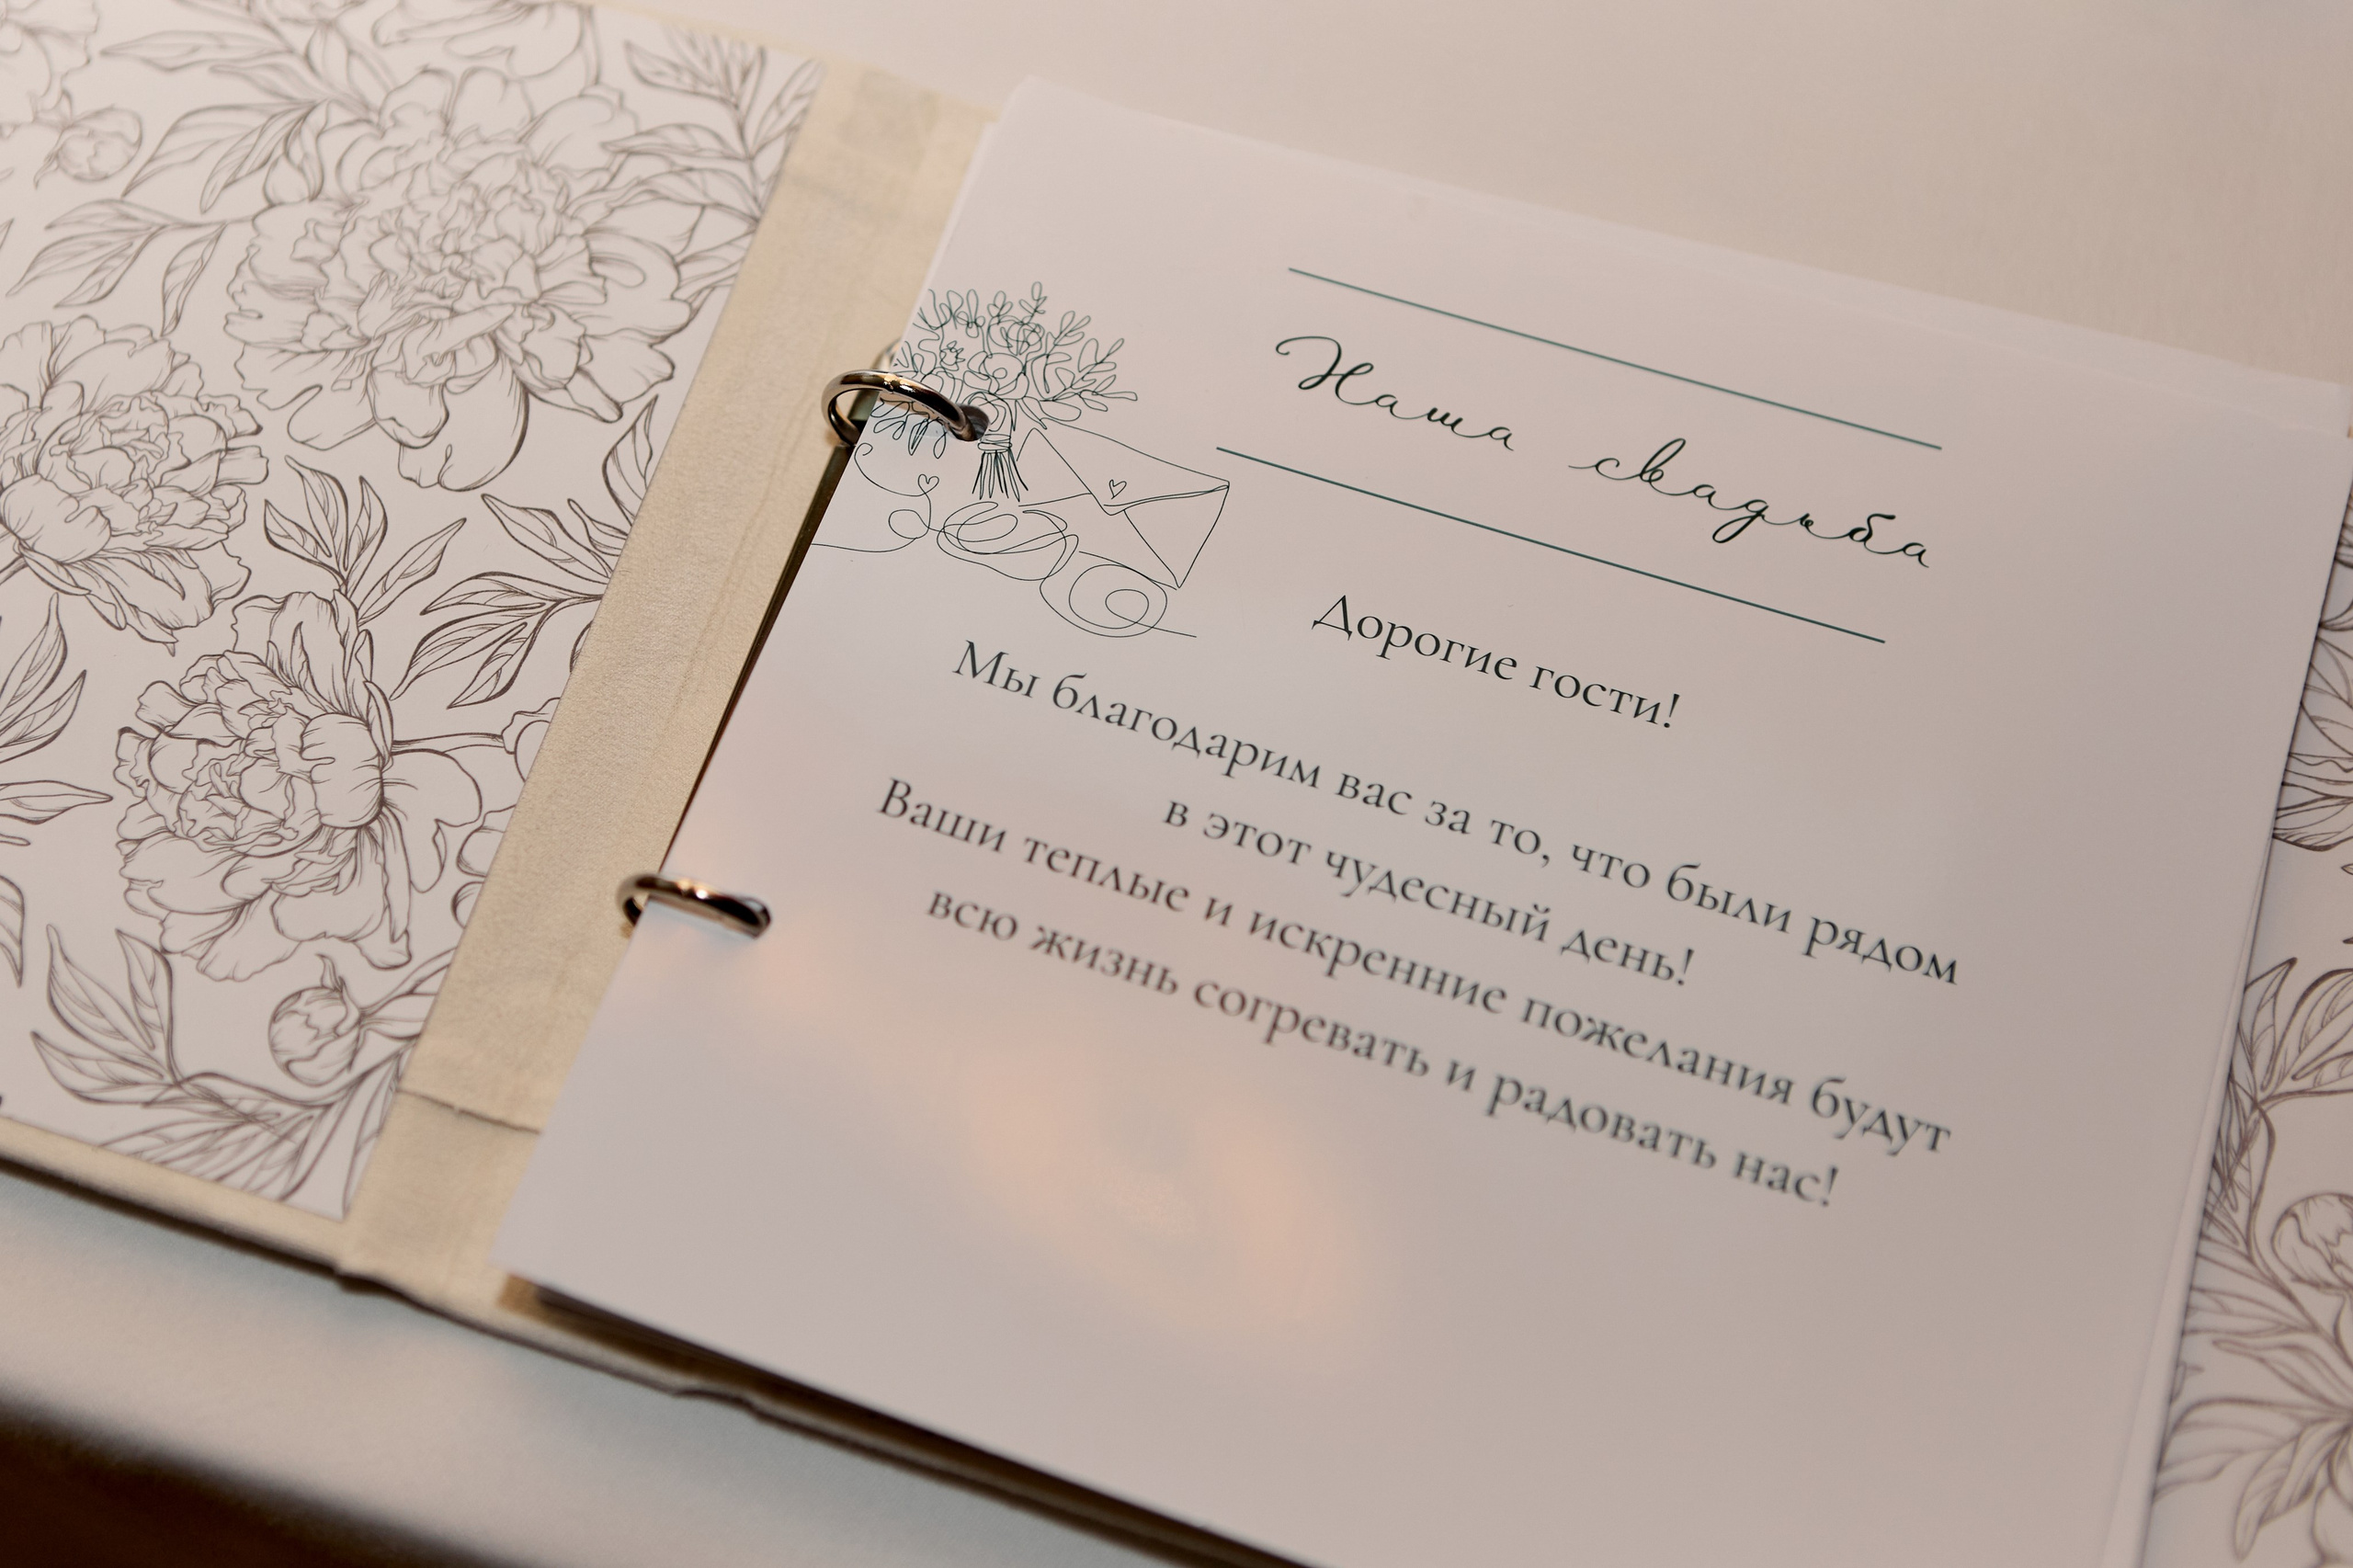 Наша свадьба
Дорогие гости!
Мы благодарим вас за то, что были рядом
в этот чудесный день!
Ваши теплые и искренние пожелания будут
всю жизнь согревать и радовать нас!